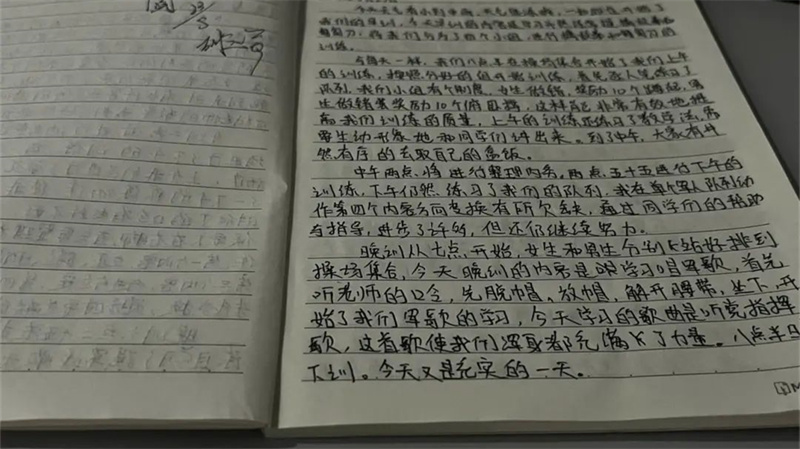 阅 23/8
我们的军训,今天早训的内容是
训练。
今天一样,我们八点半在操场集合开始了我们上午
的训练,按照分好的组开始训练,首先每人先练习了
队列,我们小组有个制度,女生做错,奖励10个蹲起,男
生做错要奖励10个俯卧撑,这样自己非常有效地提
高我们训练的质量,上午的训练还练习了教学法,需
要生动形象地和同学们讲出来。到了中午,大家有井
然有序的去取自己的盒饭。
中午两点,将进行整理内务,两点五十五进行下午的
训练,下午仍然练习了我们的队列,我在单个军人队列动
作第四个内容方向变换有所欠缺,通过同学们的帮助
与指导,进步了许多,但还仍继续努力。
晚训从七点开始,女生和男生分别站好排到
操场集合,今天晚训的内容是学习唱军歌,首先
听老师的口令,先脱帽,放帽,解开腰带,坐下,开
始了我们军歌的学习,今天学习的歌曲是听党指挥
歌,这首歌使我们浑身都充满了力量。八点半
下训。今天又是充实的一天。